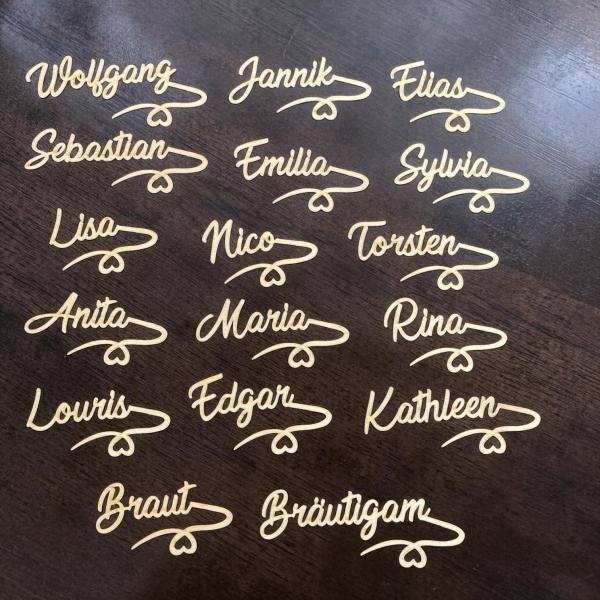 Wolfgang Jannik Elias
Sebastian Emilia Sylvia
Lisa Nico Torsten
Anita Maria Rina
Louris Edgar Kathleen
Braut Bräutigam